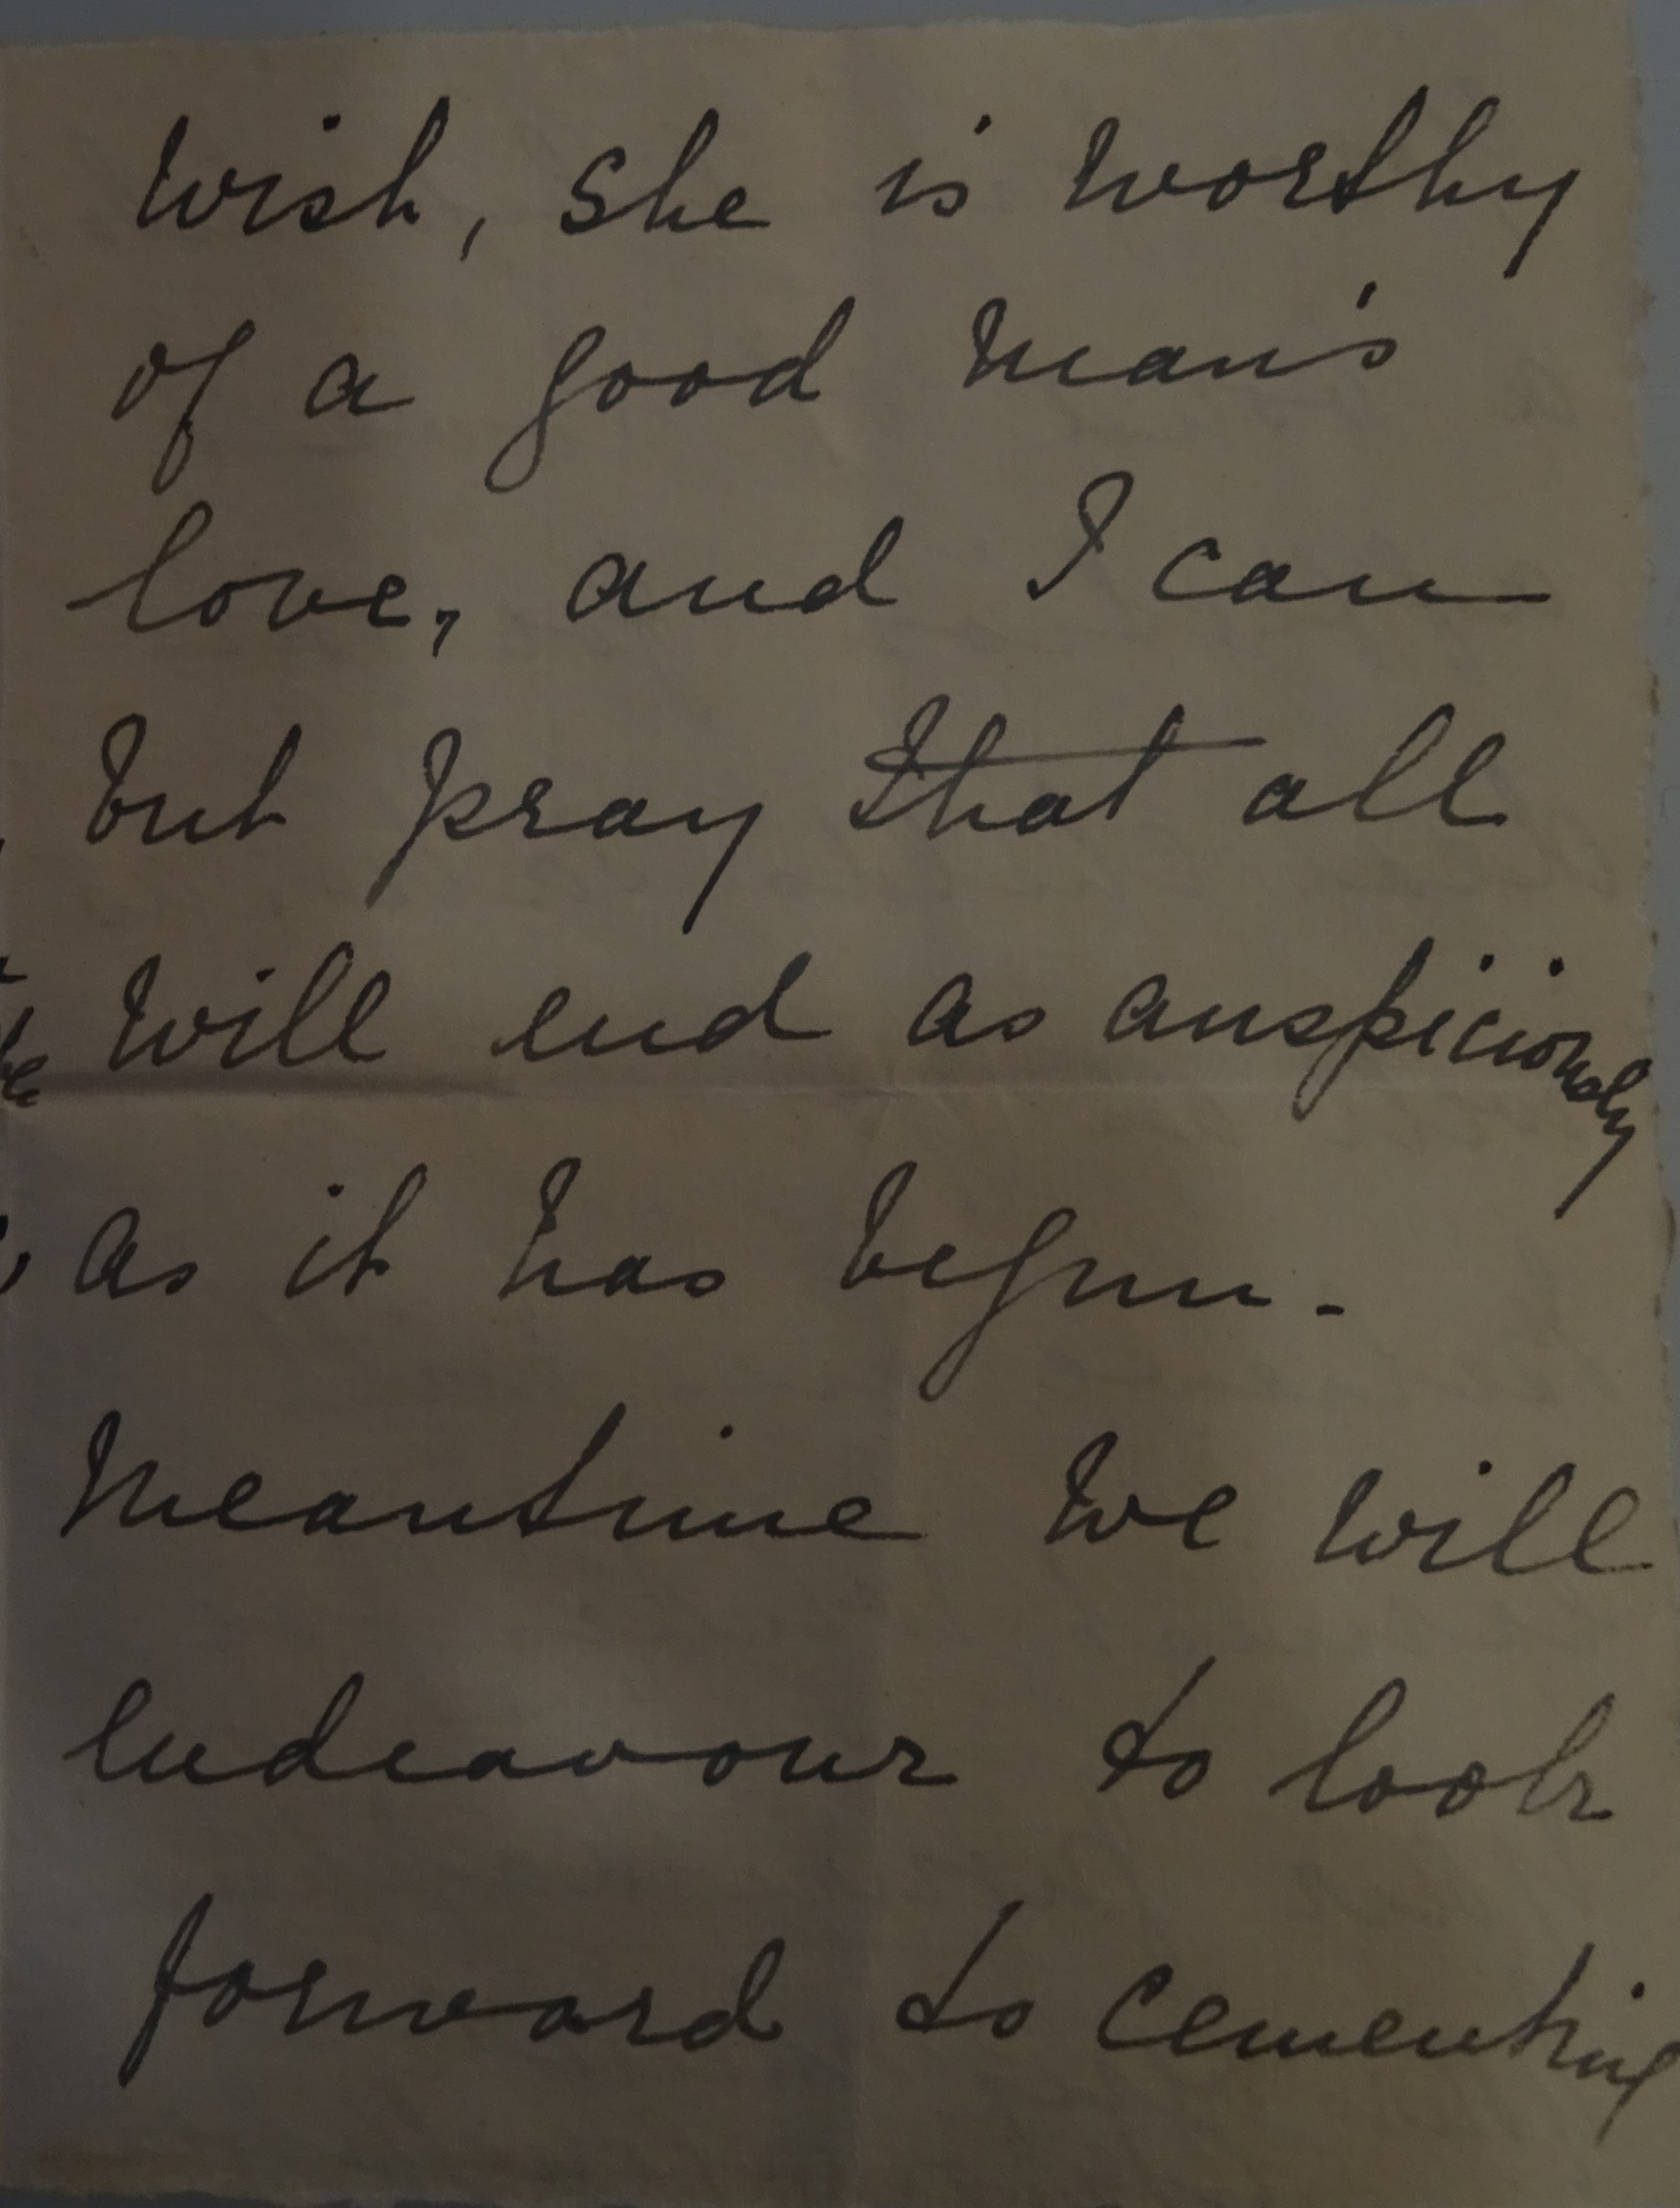 wish, she is worthy
of a good man's
love, and I can
but pray that all
will end as auspiciously
as it has begun.
Meantime we will
endeavour to look
forward to cementing